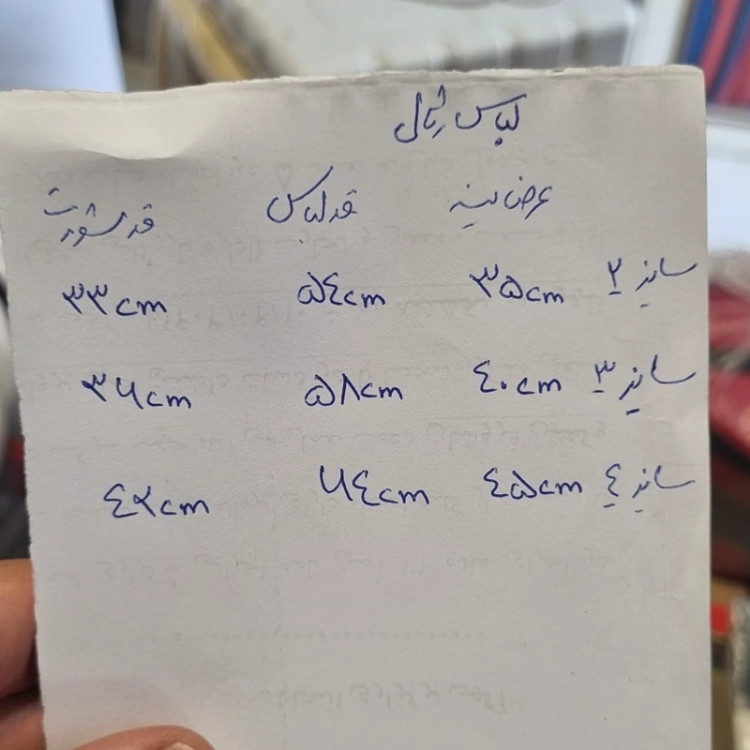 لباس رئال
عرض سینه قد لباس قد شورت
سایز ۲ ۳۵cm ۵٤cm ۳۳cm
سایز ۳ ٤۰cm ۵۸cm ۳۶cm
سایز ٤ ٤۵cm ۶٤cm ٤۲cm